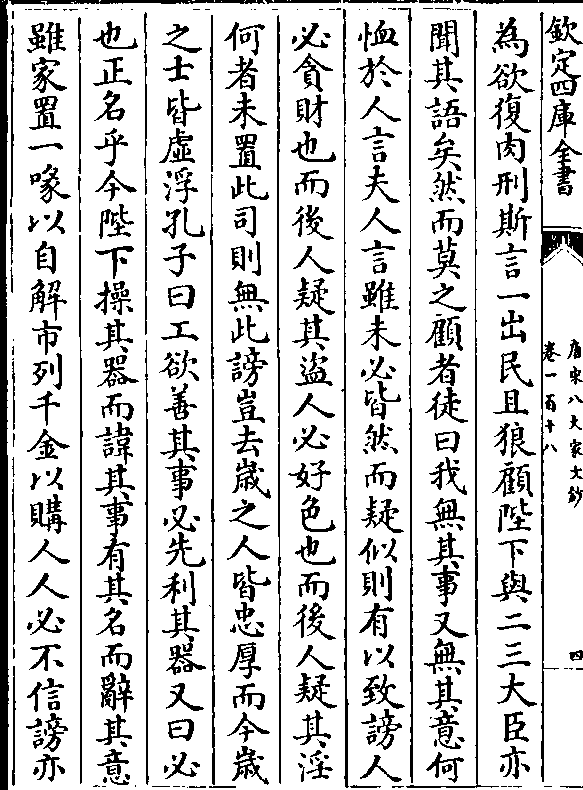 欽定四庫全書
唐宋八大家文鈔
卷一百十八
四
為欲復肉刑斯言一出民且狼顧陛下與二三大臣亦
聞其語矣然而莫之顧者徒曰我無其事又無其意何
恤於人言夫人言雖未必皆然而疑似則有以致謗人
必貪財也而後人疑其盜人必好色也而後人疑其淫
何者未置此司則無此謗豈去歲之人皆忠厚而今歲
之士皆虛浮孔子曰工欲善其事必先利其器又曰必
也正名乎今陛下操其器而諱其事有其名而辭其意
雖家置一喙以自解市列千金以購人人必不信謗亦